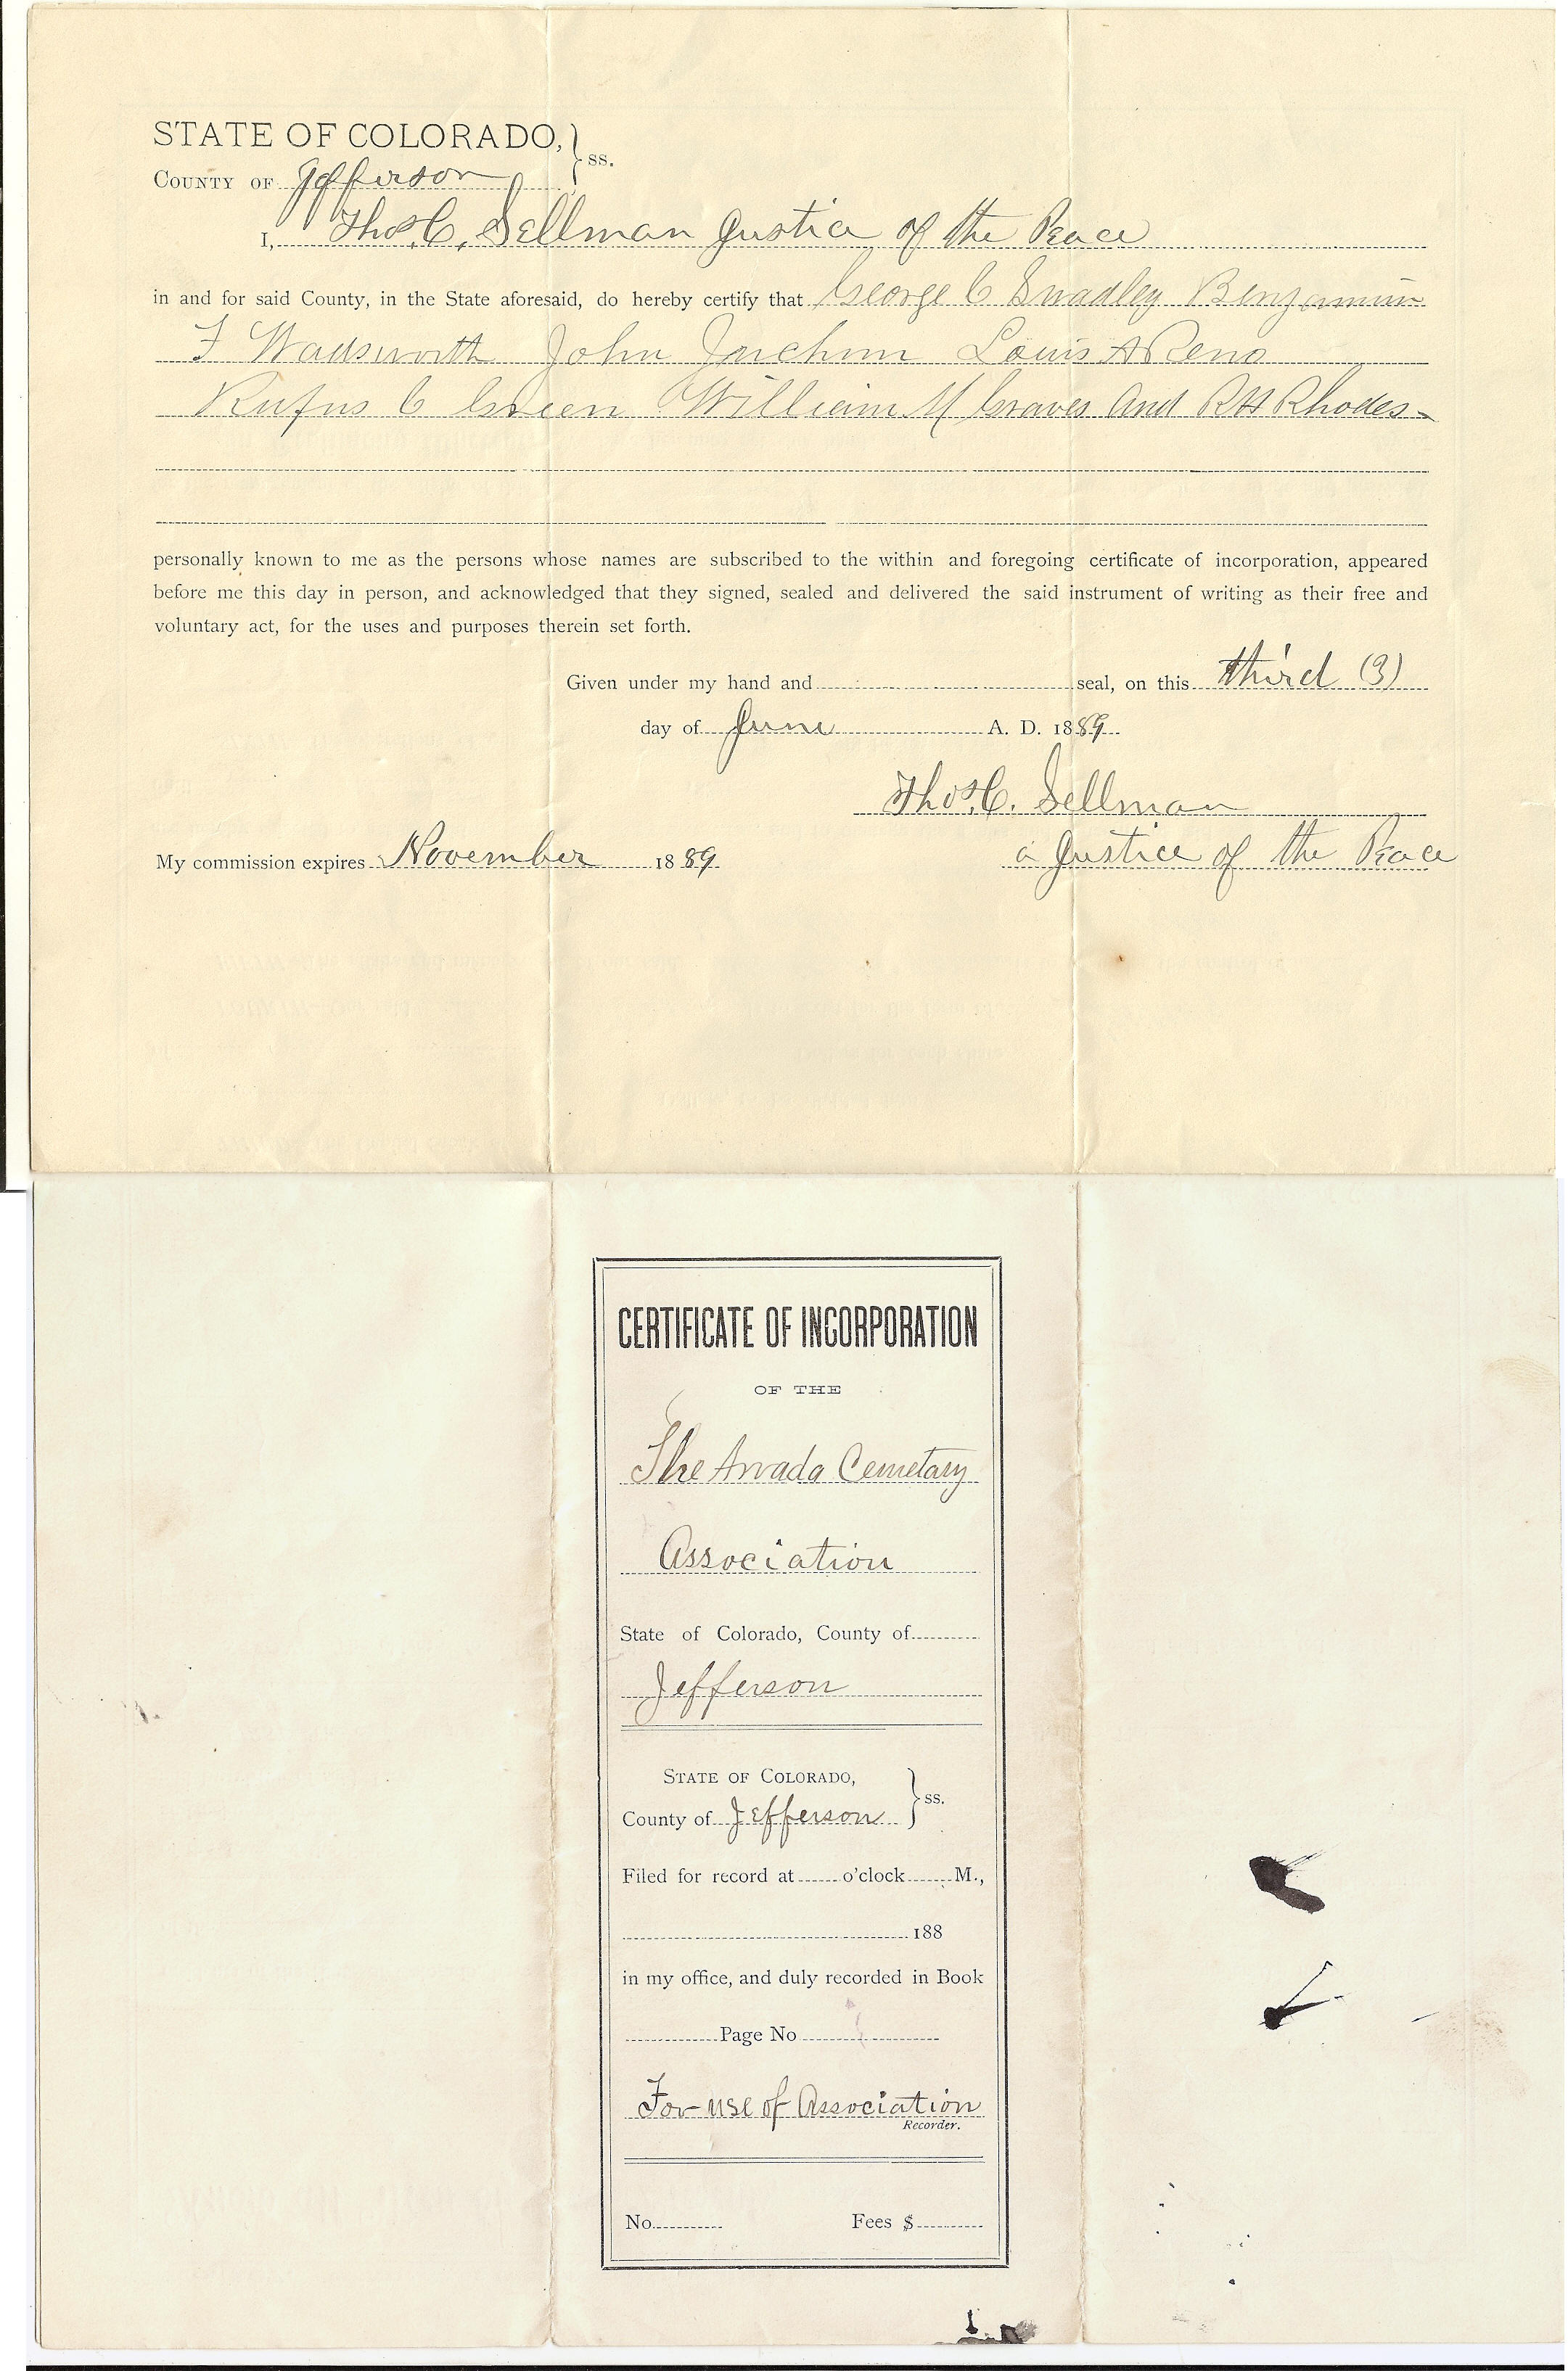 STATE OF COLORADO,
COUNTY OF Jefferson } ss.
I, Thos. C. Sellman Justice of the Peace
in and for said County, in the State aforesaid, do hereby certify that George C Swadley Benjamin
F Wadsworth John Joichim Louis A Reno
Rufus C Green William M Graves And R H Rhodes
personally known to me as the persons whose names are subscribed to the within and foregoing certificate of incorporation, appeared
before me this day in person, and acknowledged that they signed, sealed and delivered the said instrument of writing as their free and
voluntary act, for the uses and purposes therein set forth.
Given under my hand and seal, on this third (3)
day of June A. D. 1889
Thos. C. Sellman
My commission expires November 1889 a Justice of the Peace
CERTIFICATE OF INCORPORATION
OF THE
The Arvada Cemetary
Association
State of Colorado, County of
Jefferson
STATE OF COLORADO,
County of Jefferson } ss.
Filed for record at o'clock M.,
188
in my office, and duly recorded in Book
Page No
For use of Association
Recorder.
No. Fees $